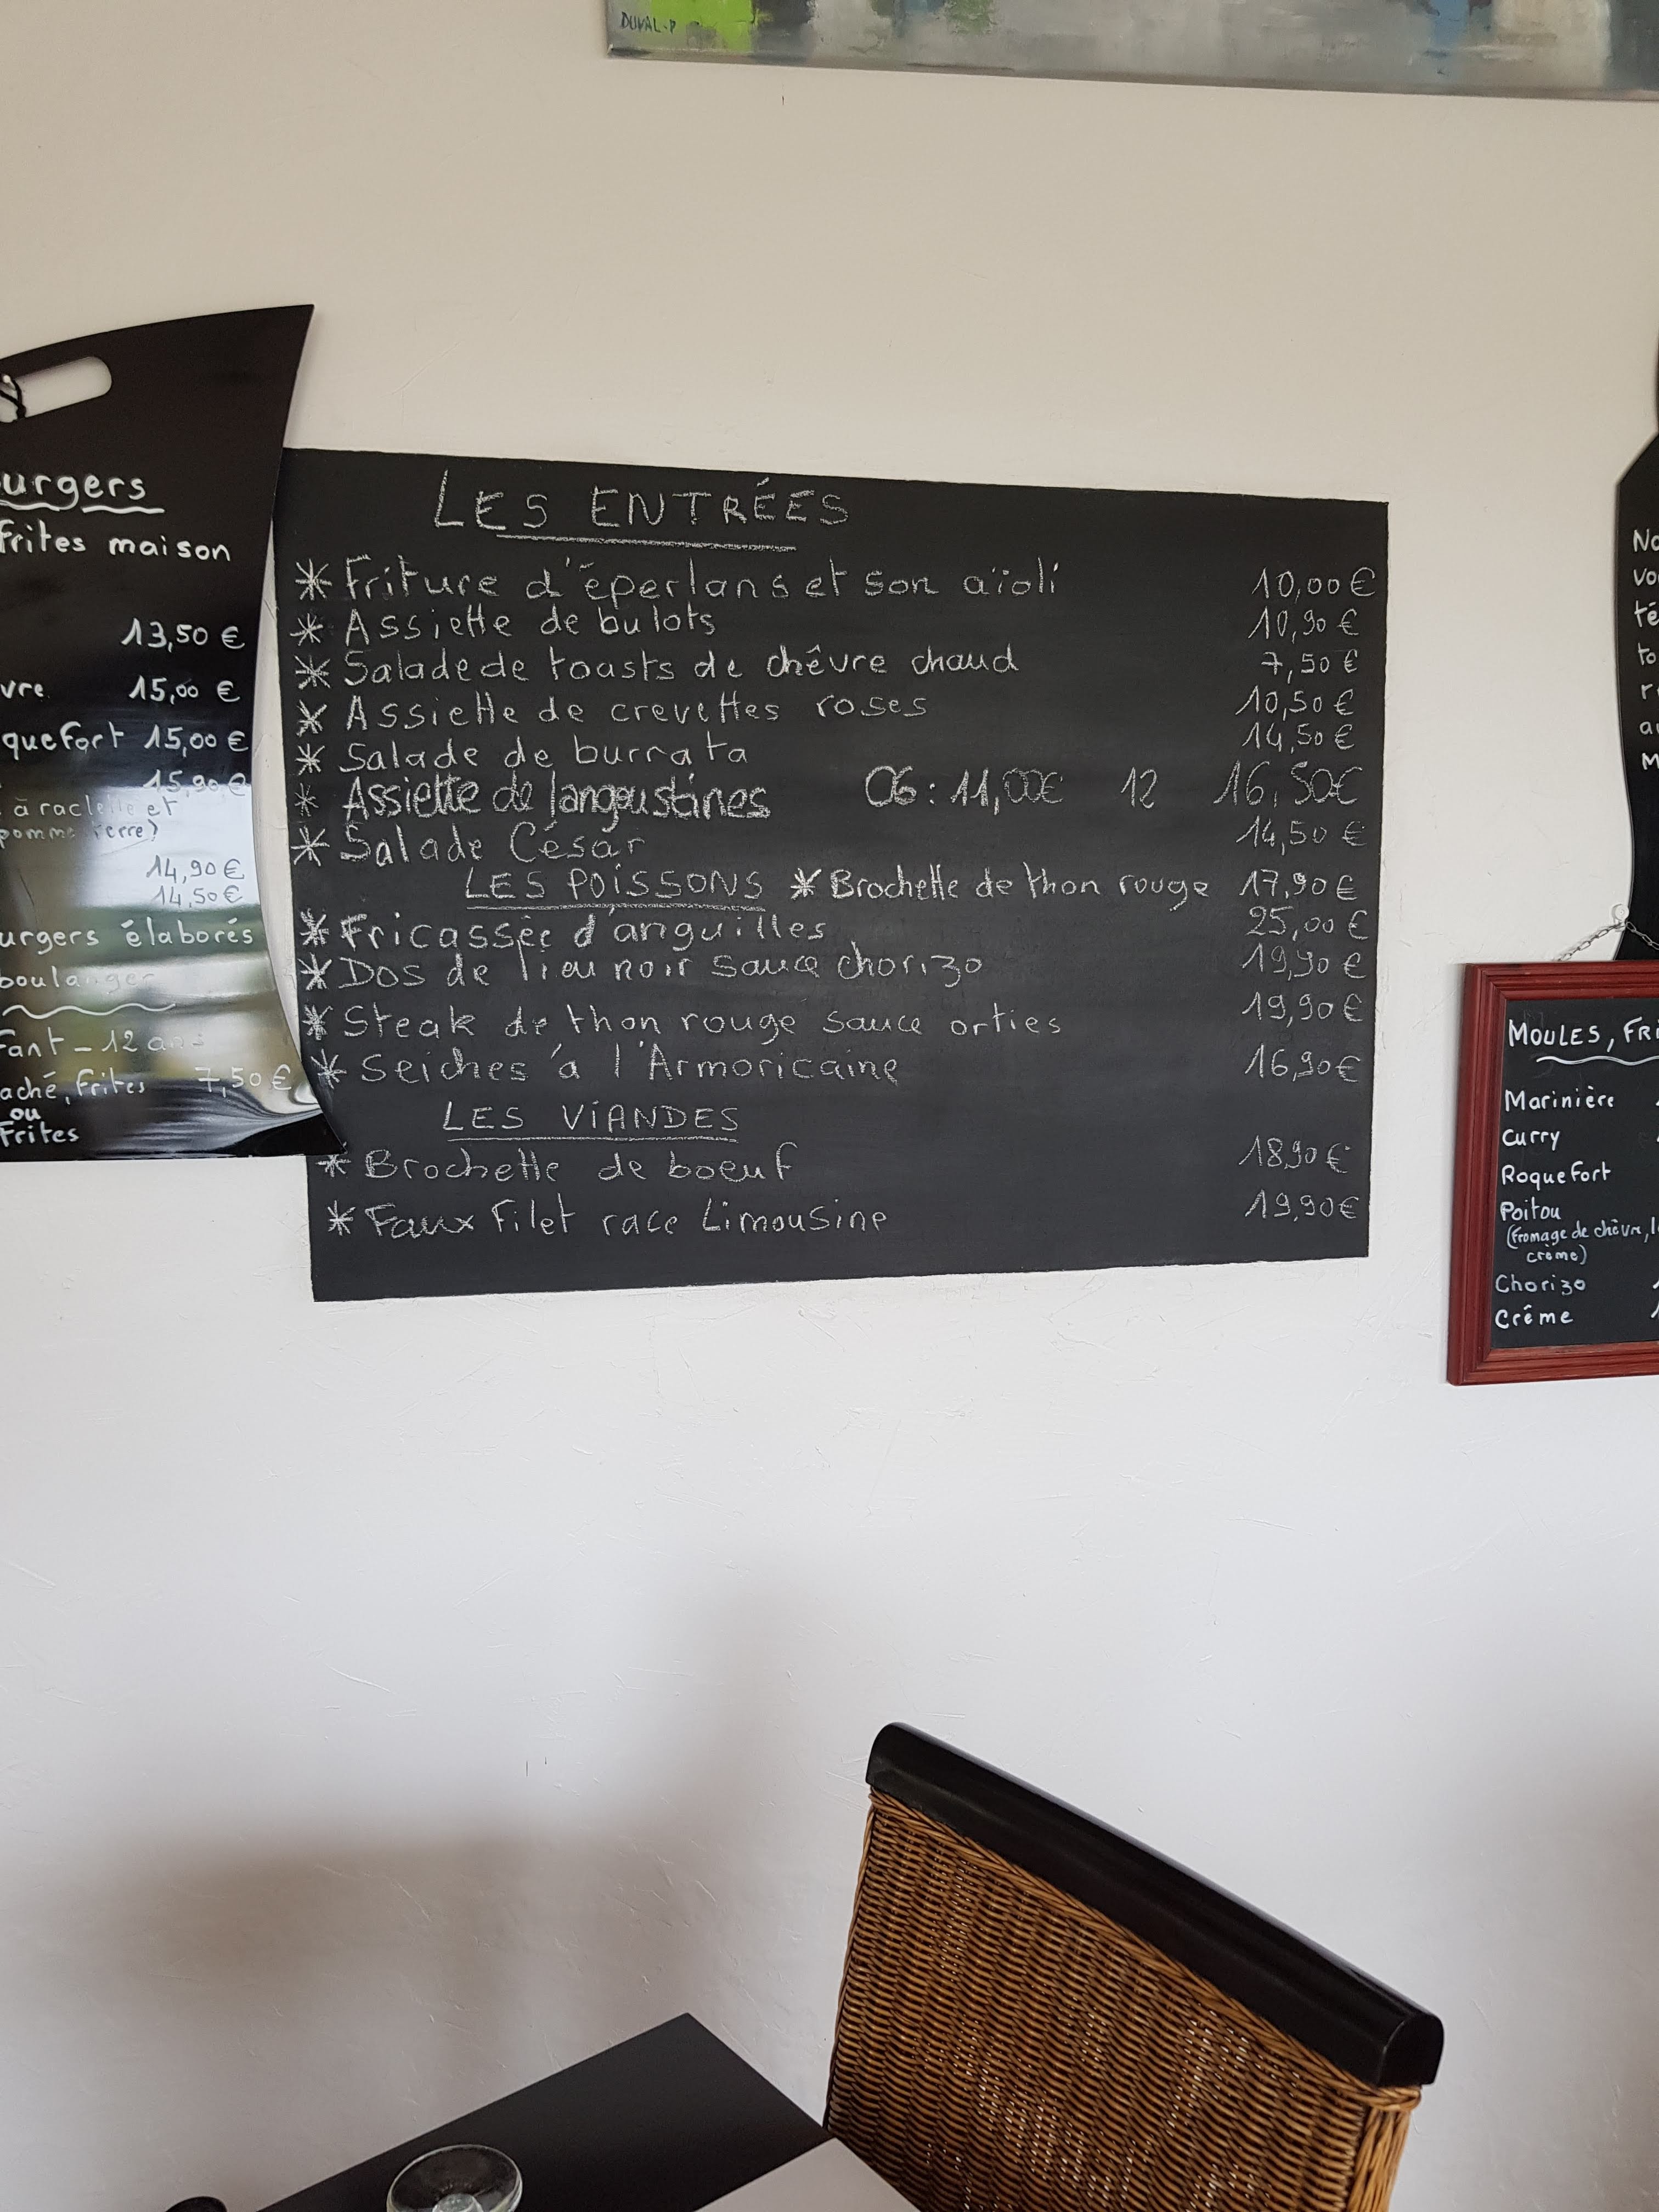 DUVAL-P
urgers
frites maison
13,50 €
vre 15,00 €
quefort 15,00 €
15,90 €
à raclette et
pomme terre)
14,90 €
14,50 €
urgers élaborés
boulanger
fant - 12 ans
aché, frites 7,50 €
ou
Frites
LES ENTRÉES
* Friture d'éperlans et son aïoli 10,00 €
* Assiette de bulots 10,90 €
* Salade de toasts de chêvre chaud 7,50 €
* Assiette de crevettes roses 10,50 €
* Salade de burrata 14,50 €
* Assiette de langoustines 06 : 11,00€ 12 16,50€
* Salade César 14,50 €
LES POISSONS * Brochette de thon rouge 17,90 €
* Fricassée d'anguilles 25,00 €
* Dos de lieu noir sauce chorizo 19,90 €
* Steak de thon rouge sauce orties 19,90 €
* Seiches à l'Armoricaine 16,90€
LES VIANDES
* Brochette de boeuf 18,90 €
* Faux Filet race Limousine 19,90€
No
vo
té
to
r
au
M
MOULES, FRI
Marinière
Curry
Roquefort
Poitou
(fromage de chèvre, l
crème)
Chorizo
Crême